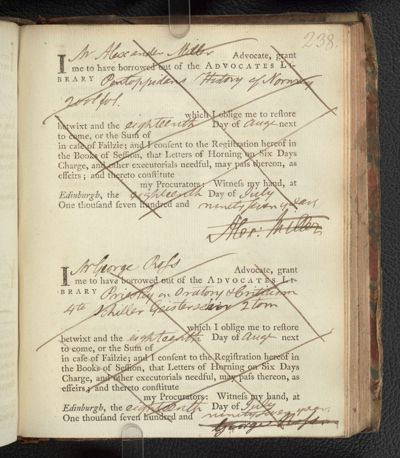 238.
I Mr Alexander Miller Advocate, grant
me to have borrowed out of the ADVOCATES LI-
BRARY Pontoppidans History of Norway
2 vol fol.
which I oblige me to restore
betwixt and the eighteenth Day of Augt next
to come, or the Sum of
in case of Failzie; and I consent to the Registration hereof in
the Books of Session, that Letters of Horning on Six Days
Charge, and other executorials needful, may pass thereon, as
effeirs; and thereto constitute
my Procurators: Witness my hand, at
Edinburgh, the eighteenth Day of July
One thousand seven hundred and ninety seven years
Alexr: Miller
I Mr George Ross Advocate, grant
me to have borrowed out of the ADVOCATES LI-
BRARY Priestley on Oratory & Criticism
4to Schiller Geisterseher 2 tom
which I oblige me to restore
betwixt and the eighteenth Day of Augt next
to come, or the Sum of
in case of Failzie; and I consent to the Registration hereof in
the Books of Session, that Letters of Horning on Six Days
Charge, and other executorials needful, may pass thereon, as
effeirs; and thereto constitute
my Procurators: Witness my hand, at
Edinburgh, the eighteenth Day of July
One thousand seven hundred and ninety seven years
George Ross